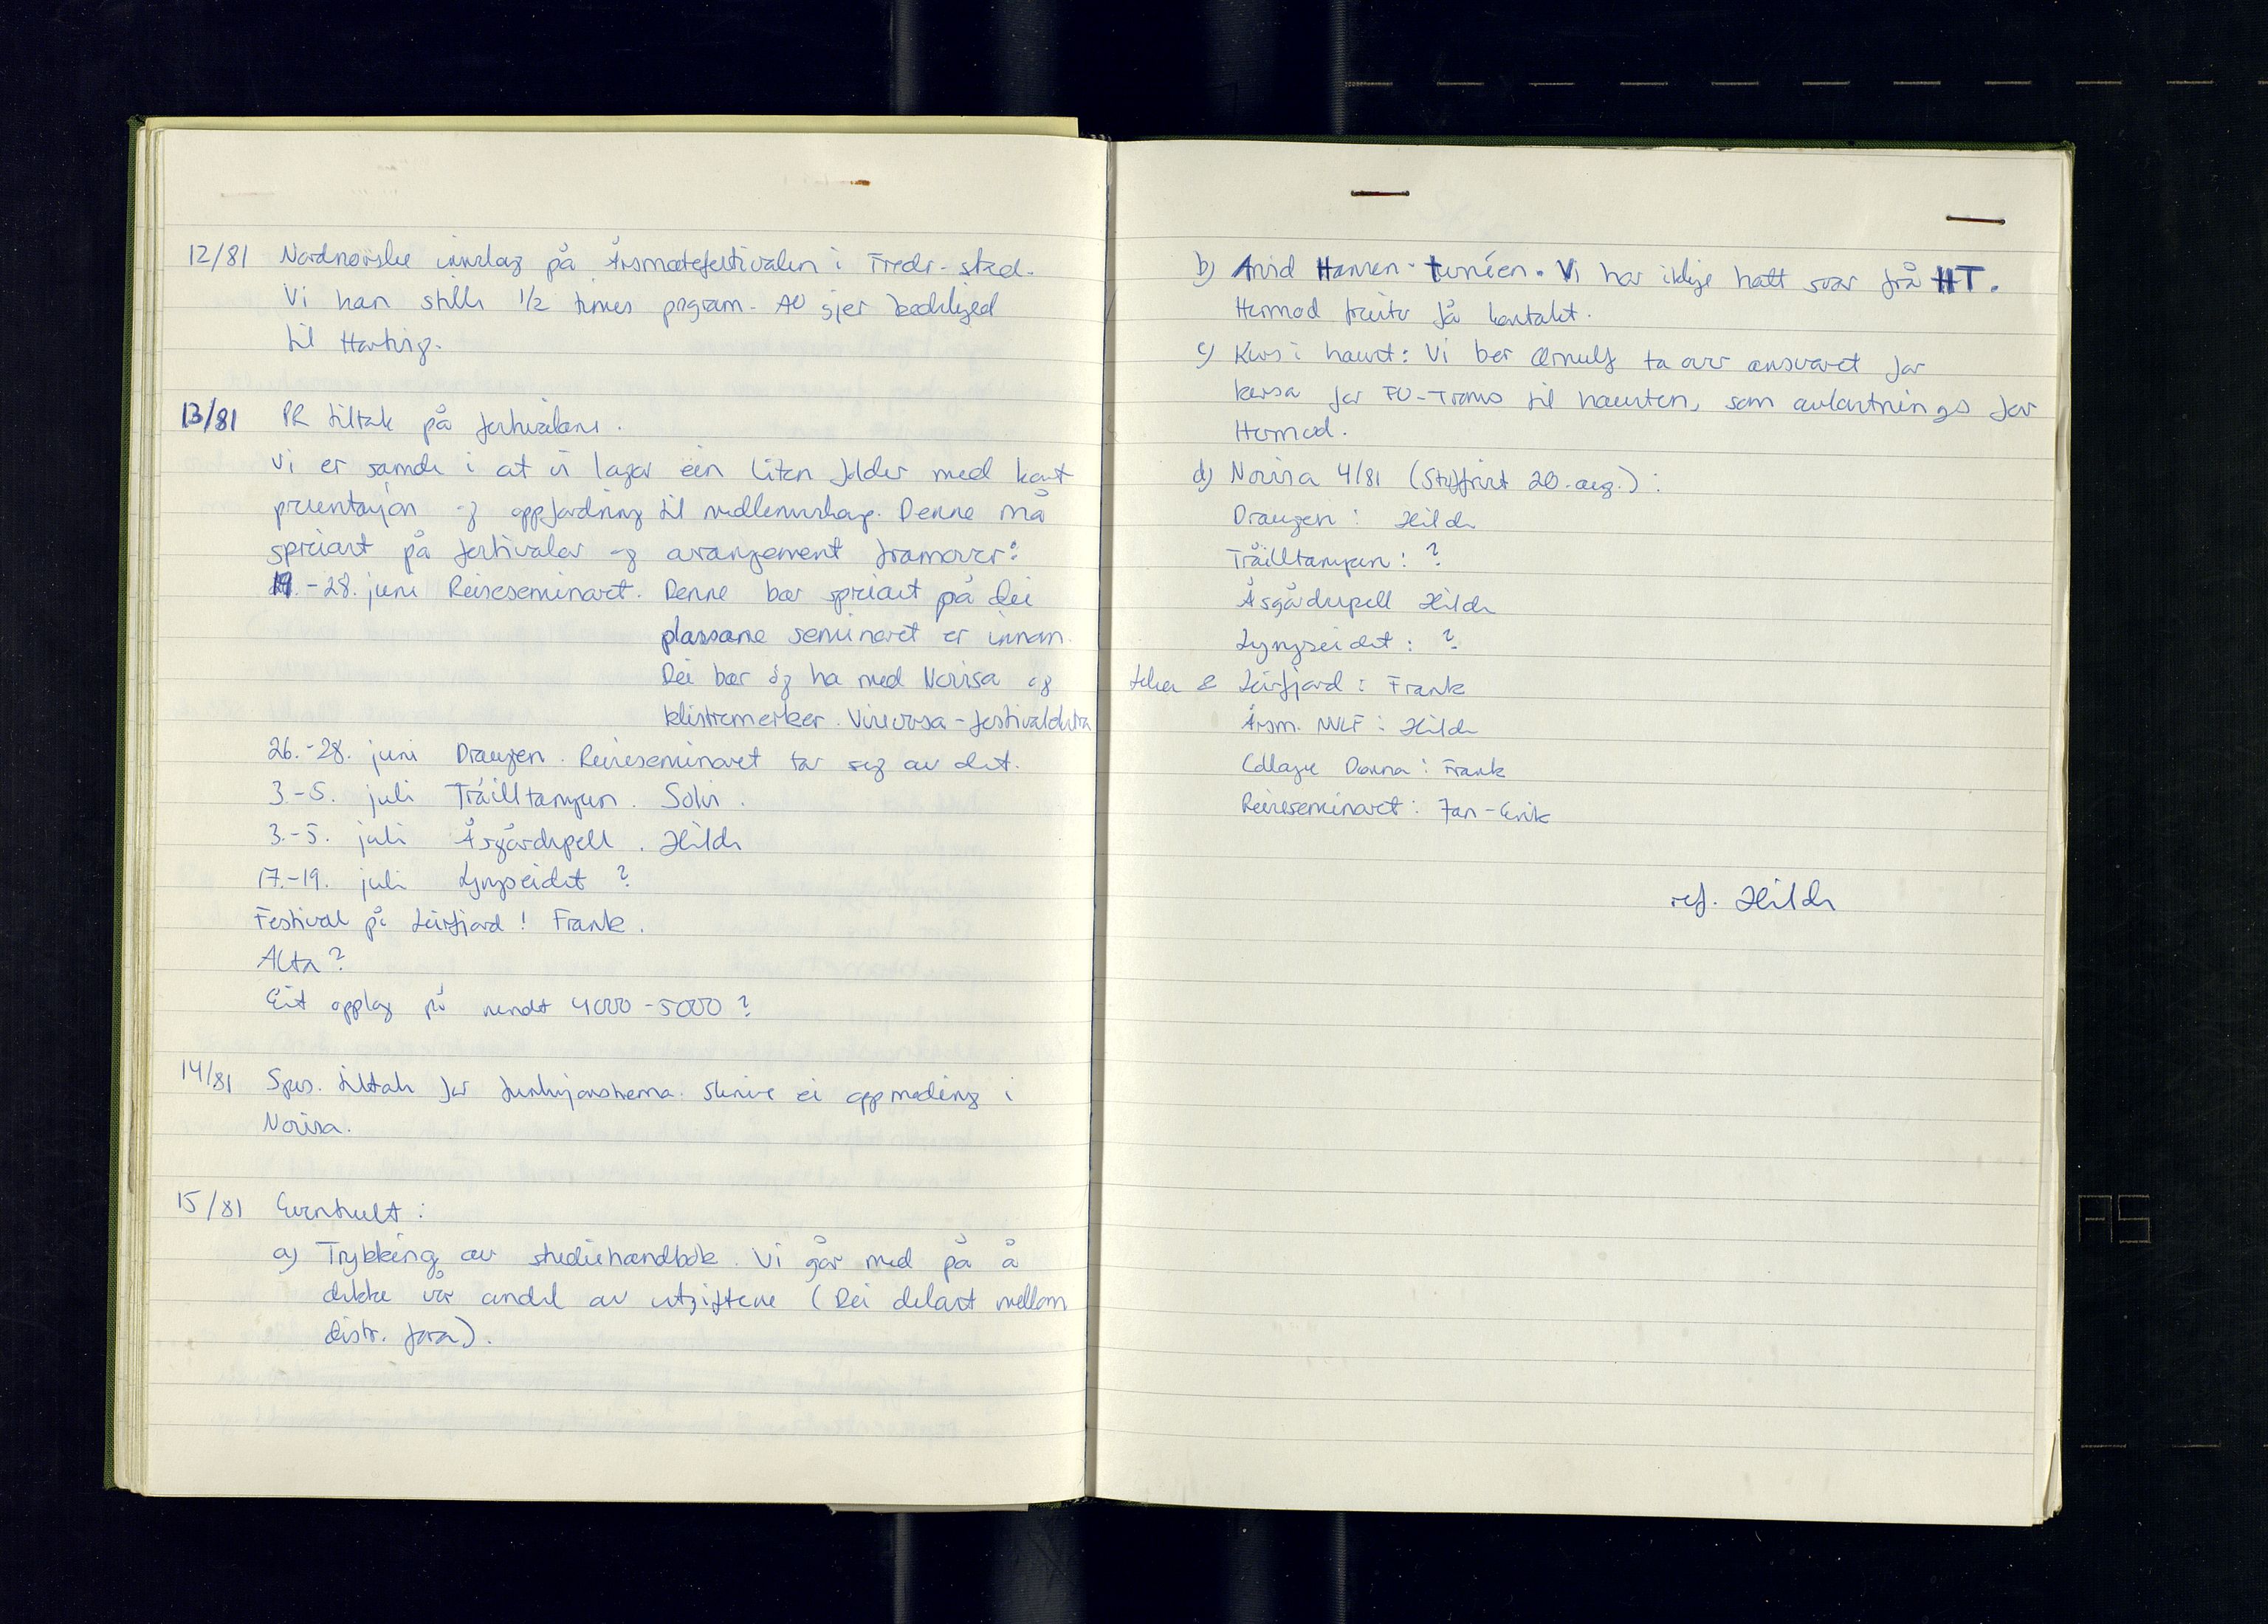 12/81 Nordnorske innslag på Årsmøtefestivalen i Fredr.stad.
Vi kan stille 1/2 times program. AU gjer beskjed
til Harting.
13/81 PR tiltak på festivalane.
Vi er samde i at vi lagar ein liten folder med kort
presentasjon og oppfordring til medlemskap. Denne må
spreiast på festivaler og arrangement framover:
19.-28. juni Reiseseminaret. Denne bør spreiast på dei
plassane seminaret er innom.
Dei bør óg ha med Novisa og
klistremerker. Visevosa-festivalekstra
26.-28. juni Draugen. Reiseseminaret tar seg av det.
3.-5. juli Tråilltampen. Solv.
3.-5. juli Åsgårdspell. Hilde
17.-19. juli Lyngseidet ?
Festival på Leirfjord! Frank.
Alta?
Eit opplag på rundt 4000-5000?
14/81 Spes. tiltak for funksjonshemma. Skrive ei oppmoding i
Novisa.
15/81 Eventuelt:
a) Trykking av studiehandbok. Vi går med på å
dekke vår andel av utgiftene (Dei delast mellom
distr. fora).
b) Arvid Hansen-turnéen. Vi har ikkje hatt svar frå HT.
Hermod freiste få kontakt.
c) Kurs i haust: Vi ber Ørnulf ta over ansvaret for
kursa for FU-Troms til hausten, som avlastnings for
Hermod.
d) Novisa 4/81 (Stoffrist 20. aug.):
Draugen: Hilde
Tråilltampen: ?
Åsgårdspell Hilde
Lyngseidet: ?
& Leirfjord: Frank
Årsm. NVLF: Hilde
Collage Dønna: Frank
Reiseseminaret: Jan-Erik
ref. Hilde